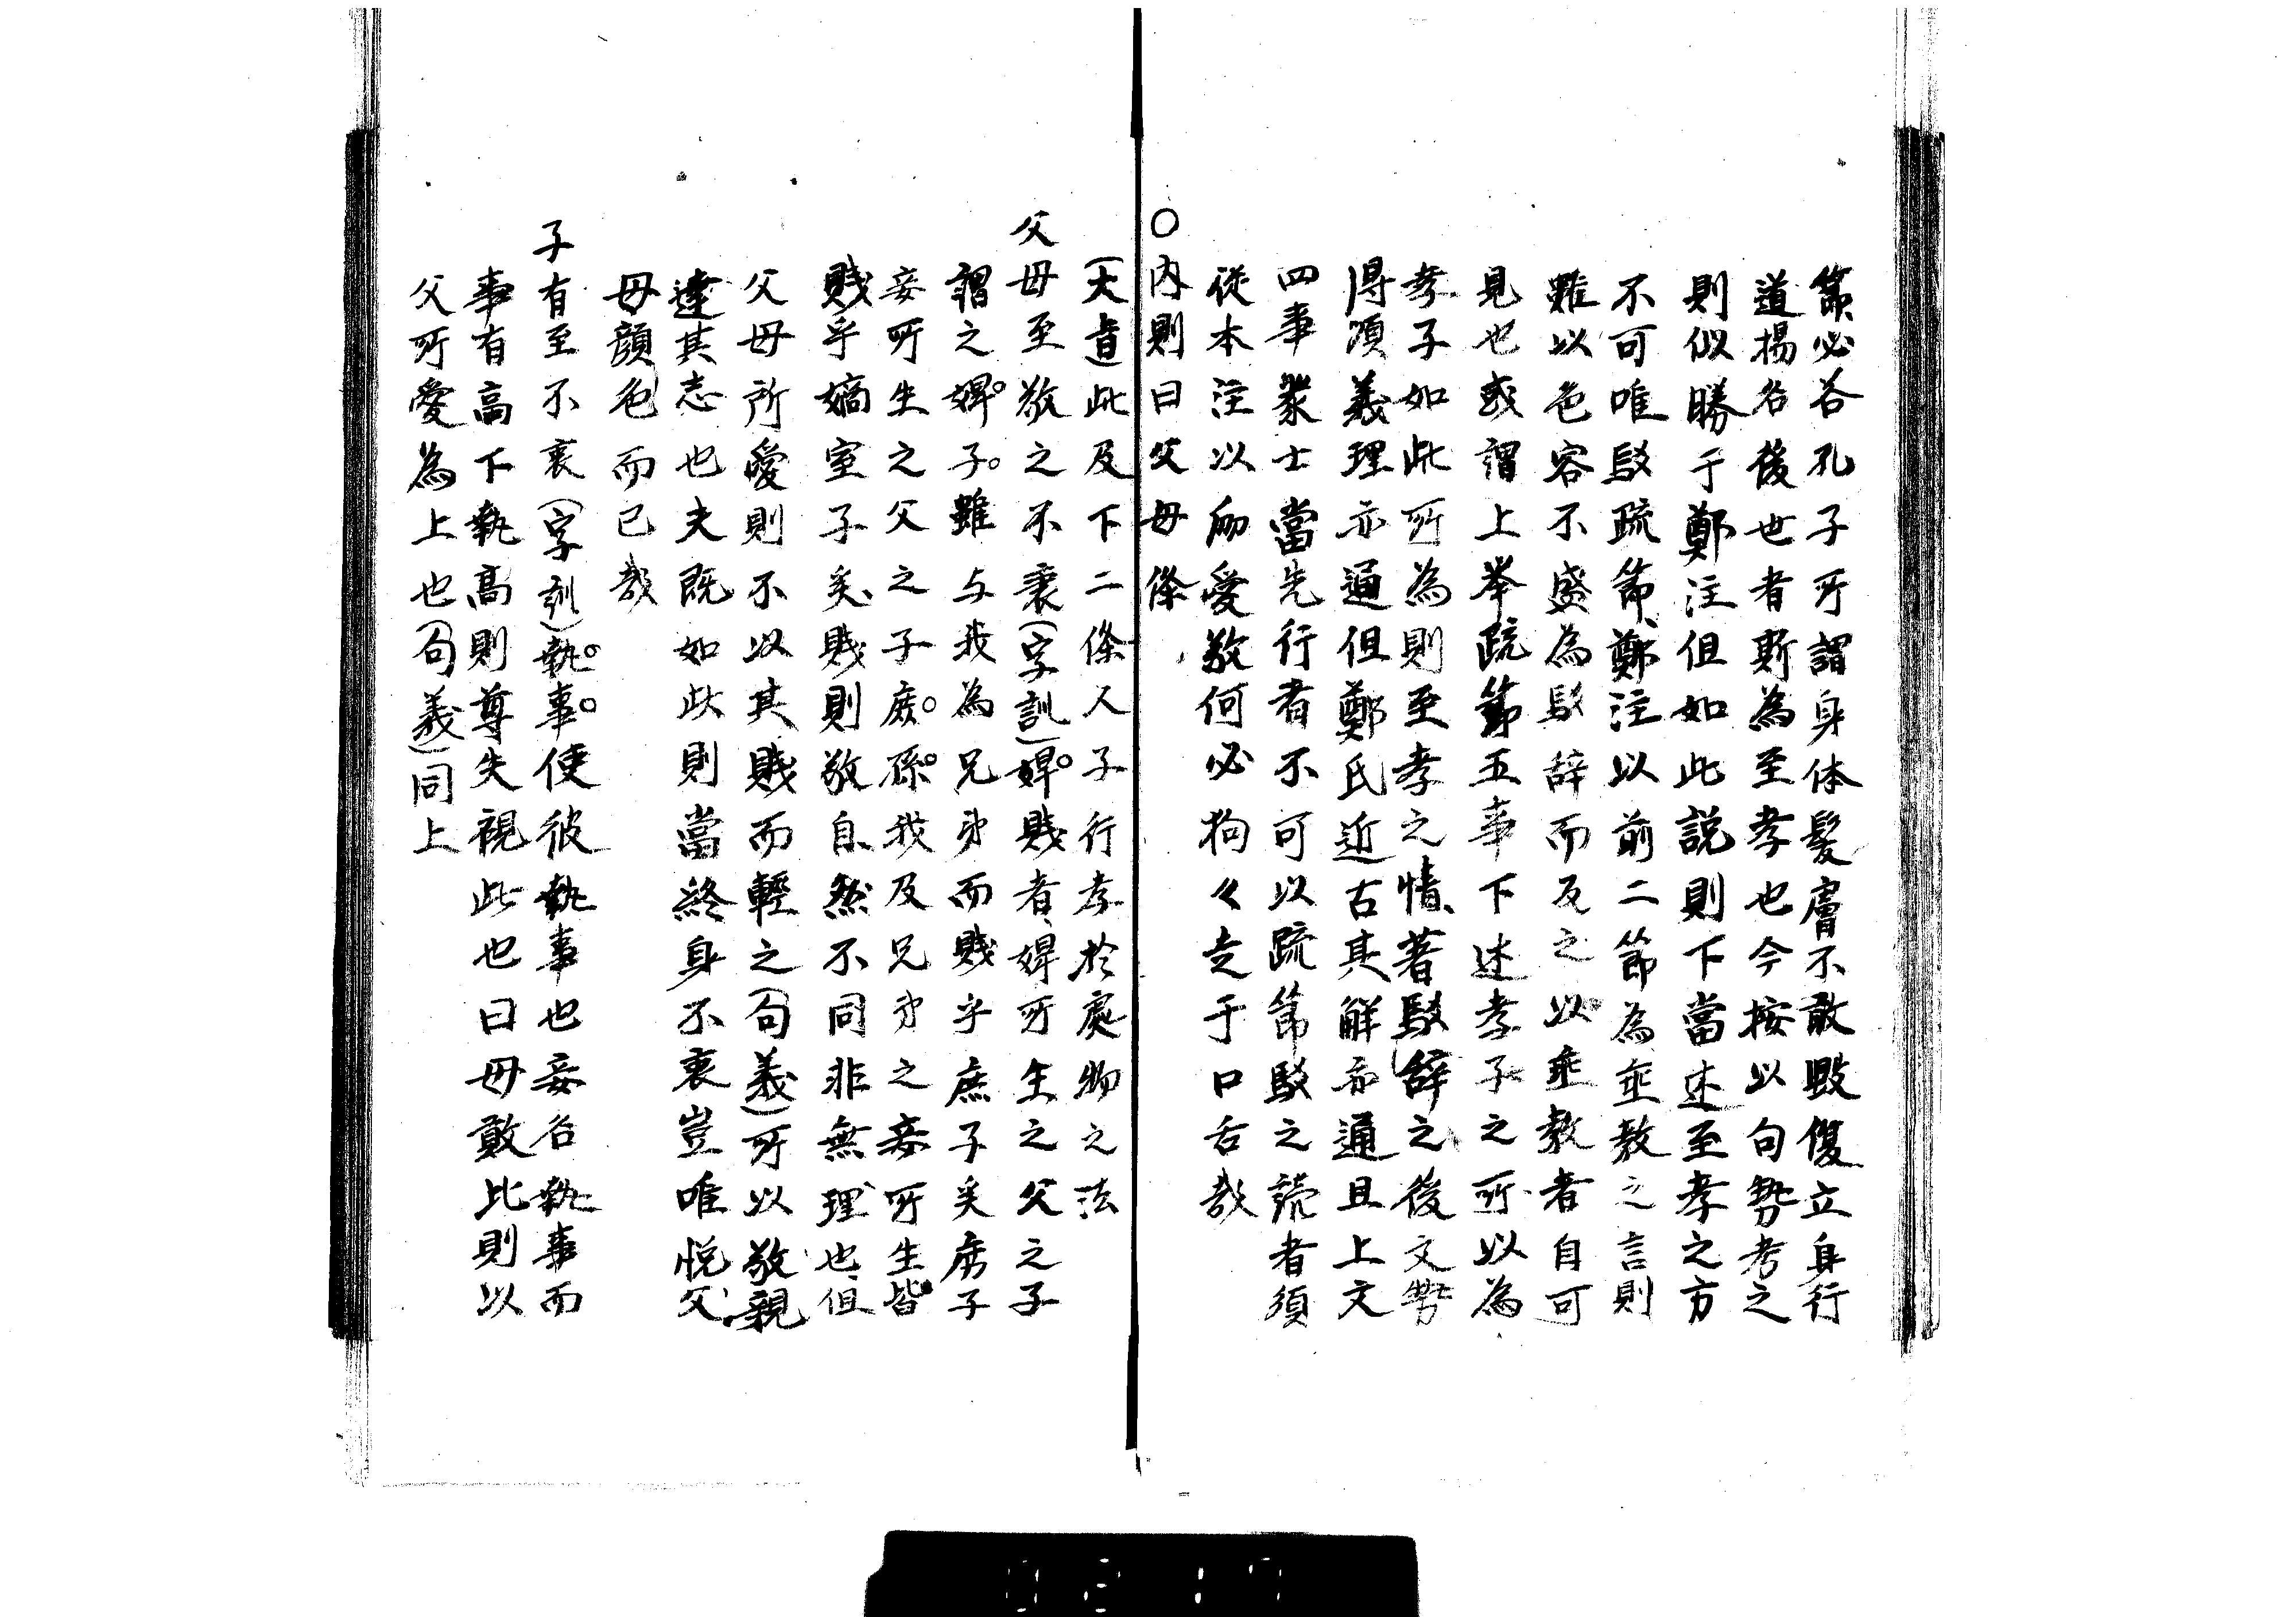 節必答孔子所謂身体髮膚不敢毀復立身行
道揚名後世者斯為至孝也今按以句勢考之
則似勝于鄭注但如此説則下當述至孝之方
不可唯駁疏節鄭注以前二節為垂教之言則
雖以色容不盛為駁辞而反之以垂教者自可
見也或謂上挙疏節五事下述孝子之所以為
孝子如此所為則至孝之情著駁辞之後文勢
得順義理亦通但鄭氏近古其解亦通且上文
四事衆士當先行者不可以疏節駁之読者須
従本注以致愛敬何必狗々走于口舌哉
○内則曰父母條
(大旨)此及下二條人子行孝於處物之法
父母至敬之不衰(字訓)婢。賎者婢所生之父之子
謂之婢。子。雖与我為兄弟而賎乎庶子矣庶子
妾所生之父之子庶。孫。我及兄弟之妾所生皆
賎乎嫡室子矣賎則敬自然不同非無理也但
父母所愛則不以其賎而輕之(句義)所以敬親
違其志也夫既如此則當終身不衰豈唯悦父
母顔色而已哉
子有至不衰(字訓)執。事。使彼執事也妾名執事而
事有高下執高則尊失視此也曰毋敢比則以
父所愛為上也(句義)同上